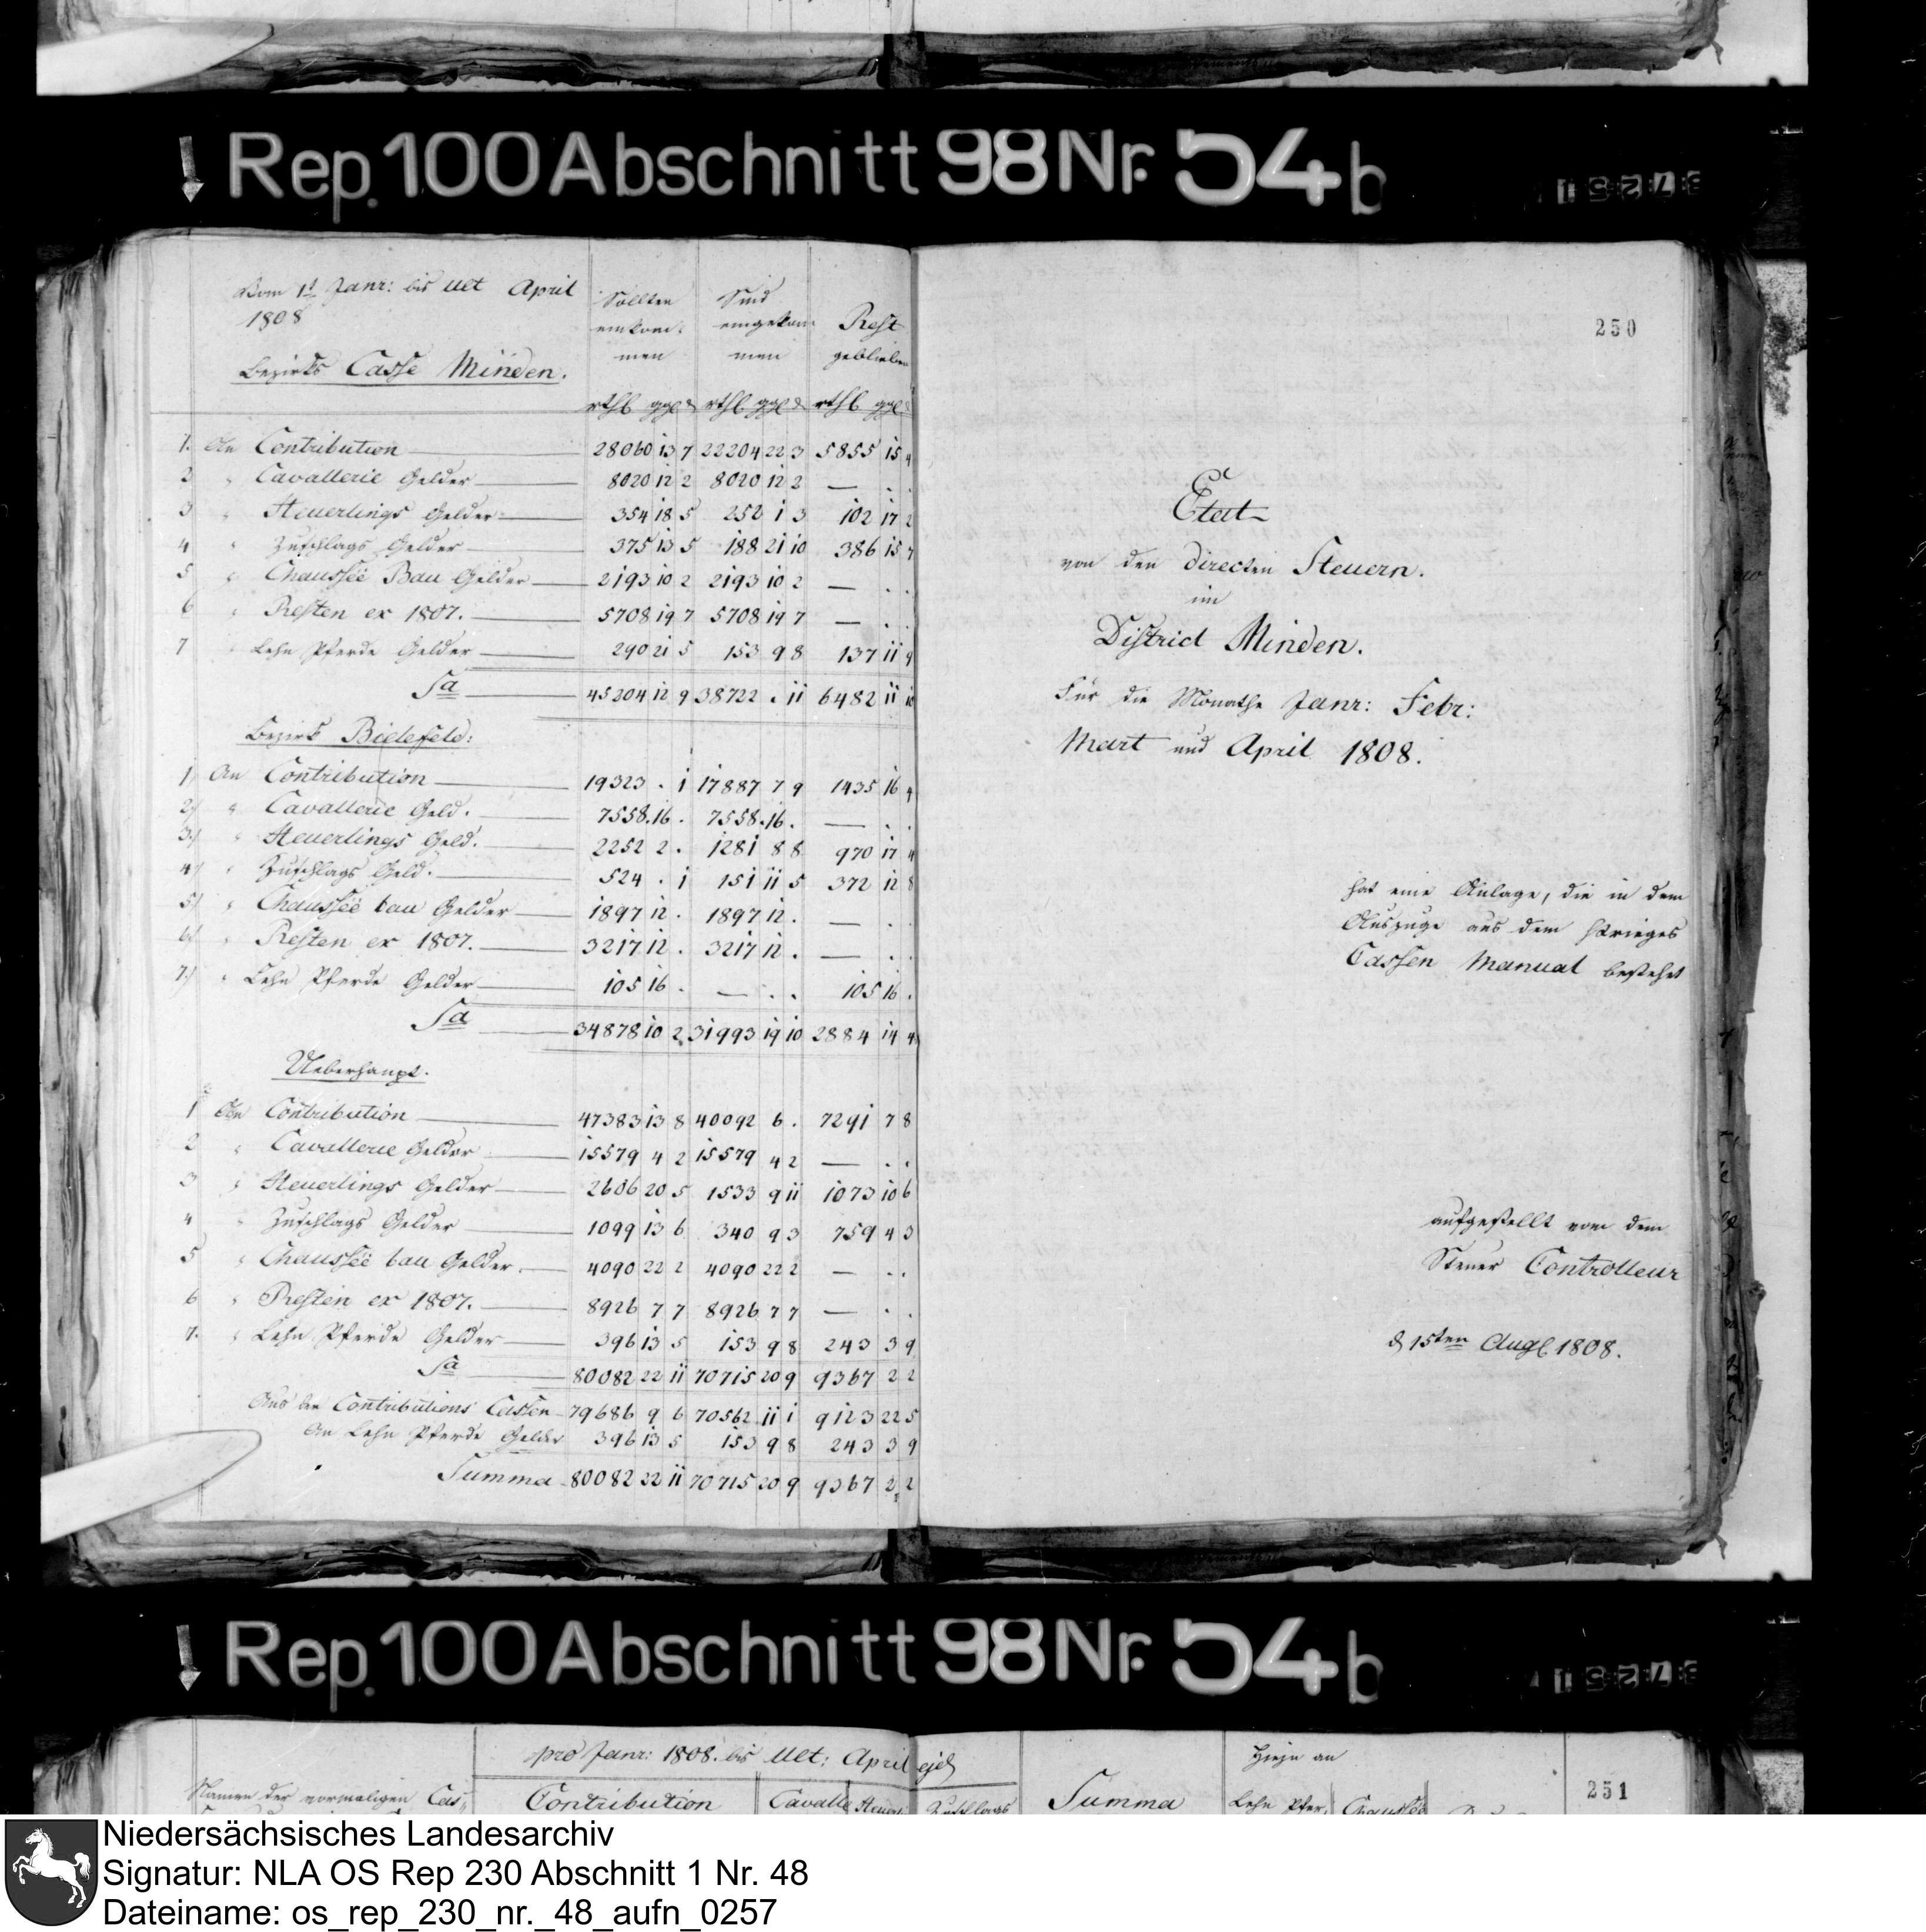 Rep. 100 Abschnitt 98 Nr. 54 b
Vom 1t Janr: bis ult April
1808
Bezirks Casse Minden.
Sollten einkom: men | Sind eingekom men | Rest geblieben
rthl ggl d | rthl ggl d | rthl ggl d
1. An Contribution 28060 13 7 22204 22 3 5855 15 4
2 " Cavallerie Gelder 8020 12 2 8020 12 2 — . .
3 " Heuerlings Gelder 354 18 5 252 1 3 102 17 2
4 " Zuschlags Gelder 375 13 5 188 21 10 386 15 7
5 " Chaussée Bau Gelder 2193 10 2 2193 10 2 — . .
6 " Resten ex 1807. 5708 19 7 5708 19 7 — . .
7 " Lehn Pferde Gelder 290 21 5 153 9 8 137 11 9
Sa 45204 12 9 38722 . 11 6482 11 10
Bezirk Bielefeld:
1) An Contribution 19323 . 1 17887 7 9 1435 16 4
2) " Cavallerie Geld. 7558 . 16 . 7558 . 16 . — . .
3) " Heuerlings Geld. 2252 2 . 1281 8 8 970 17 4
4) " Zuschlags Geld. 524 . 1 151 11 5 372 12 8
5) " Chaussée bau Gelder 1897 12 . 1897 12 . — . .
6) " Resten ex 1807. 3217 12 . 3217 12 . — . .
7) " Lehn Pferde Gelder 105 16 . — . . 105 16 .
Sa 34878 10 2 31993 19 10 2884 14 4
Ueberhaupt.
1 An Contribution 47383 13 8 40092 6 . 7291 7 8
2 " Cavallerie Gelder 15579 4 2 15579 4 2 — . .
3 " Heuerlings Gelder 2606 20 5 1533 9 11 1073 10 6
4 " Zuschlags Gelder 1099 13 6 340 9 3 759 4 3
5 " Chaussée bau Gelder. 4090 22 2 4090 22 2 — . .
6 " Resten ex 1807. 8926 7 7 8926 7 7 — . .
7. " Lehn Pferde Gelder 396 13 5 153 9 8 243 3 9
Sa 80082 22 11 70715 20 9 9367 2 2
Aus den Contributions Cassen 79686 9 6 70562 11 1 9123 22 5
An Lehn Pferde Gelder 396 13 5 153 9 8 243 3 9
Summa 80082 22 11 70715 20 9 9367 2 2
250
Etat
von den directen Steuern.
im
District Minden.
Für die Monathe Janr: Febr:
Mart und April 1808.
hat eine Anlage, die in dem
Auszuge aus dem Krieges
Cassen Manual besteht
aufgestellt von dem
Steuer Controlleur
d 15ten Augl 1808.
Rep. 100 Abschnitt 98 Nr. 54 b
pro Janr: 1808. bis ult: April ejd
Hiezu an
251
Namen der vormaligen Cas-
Contribution
Cavalle
Heuerl
Zuschlags
Summa
Lehn Pfer.
Chaussée
Niedersächsisches Landesarchiv
Signatur: NLA OS Rep 230 Abschnitt 1 Nr. 48
Dateiname: os_rep_230_nr._48_aufn_0257